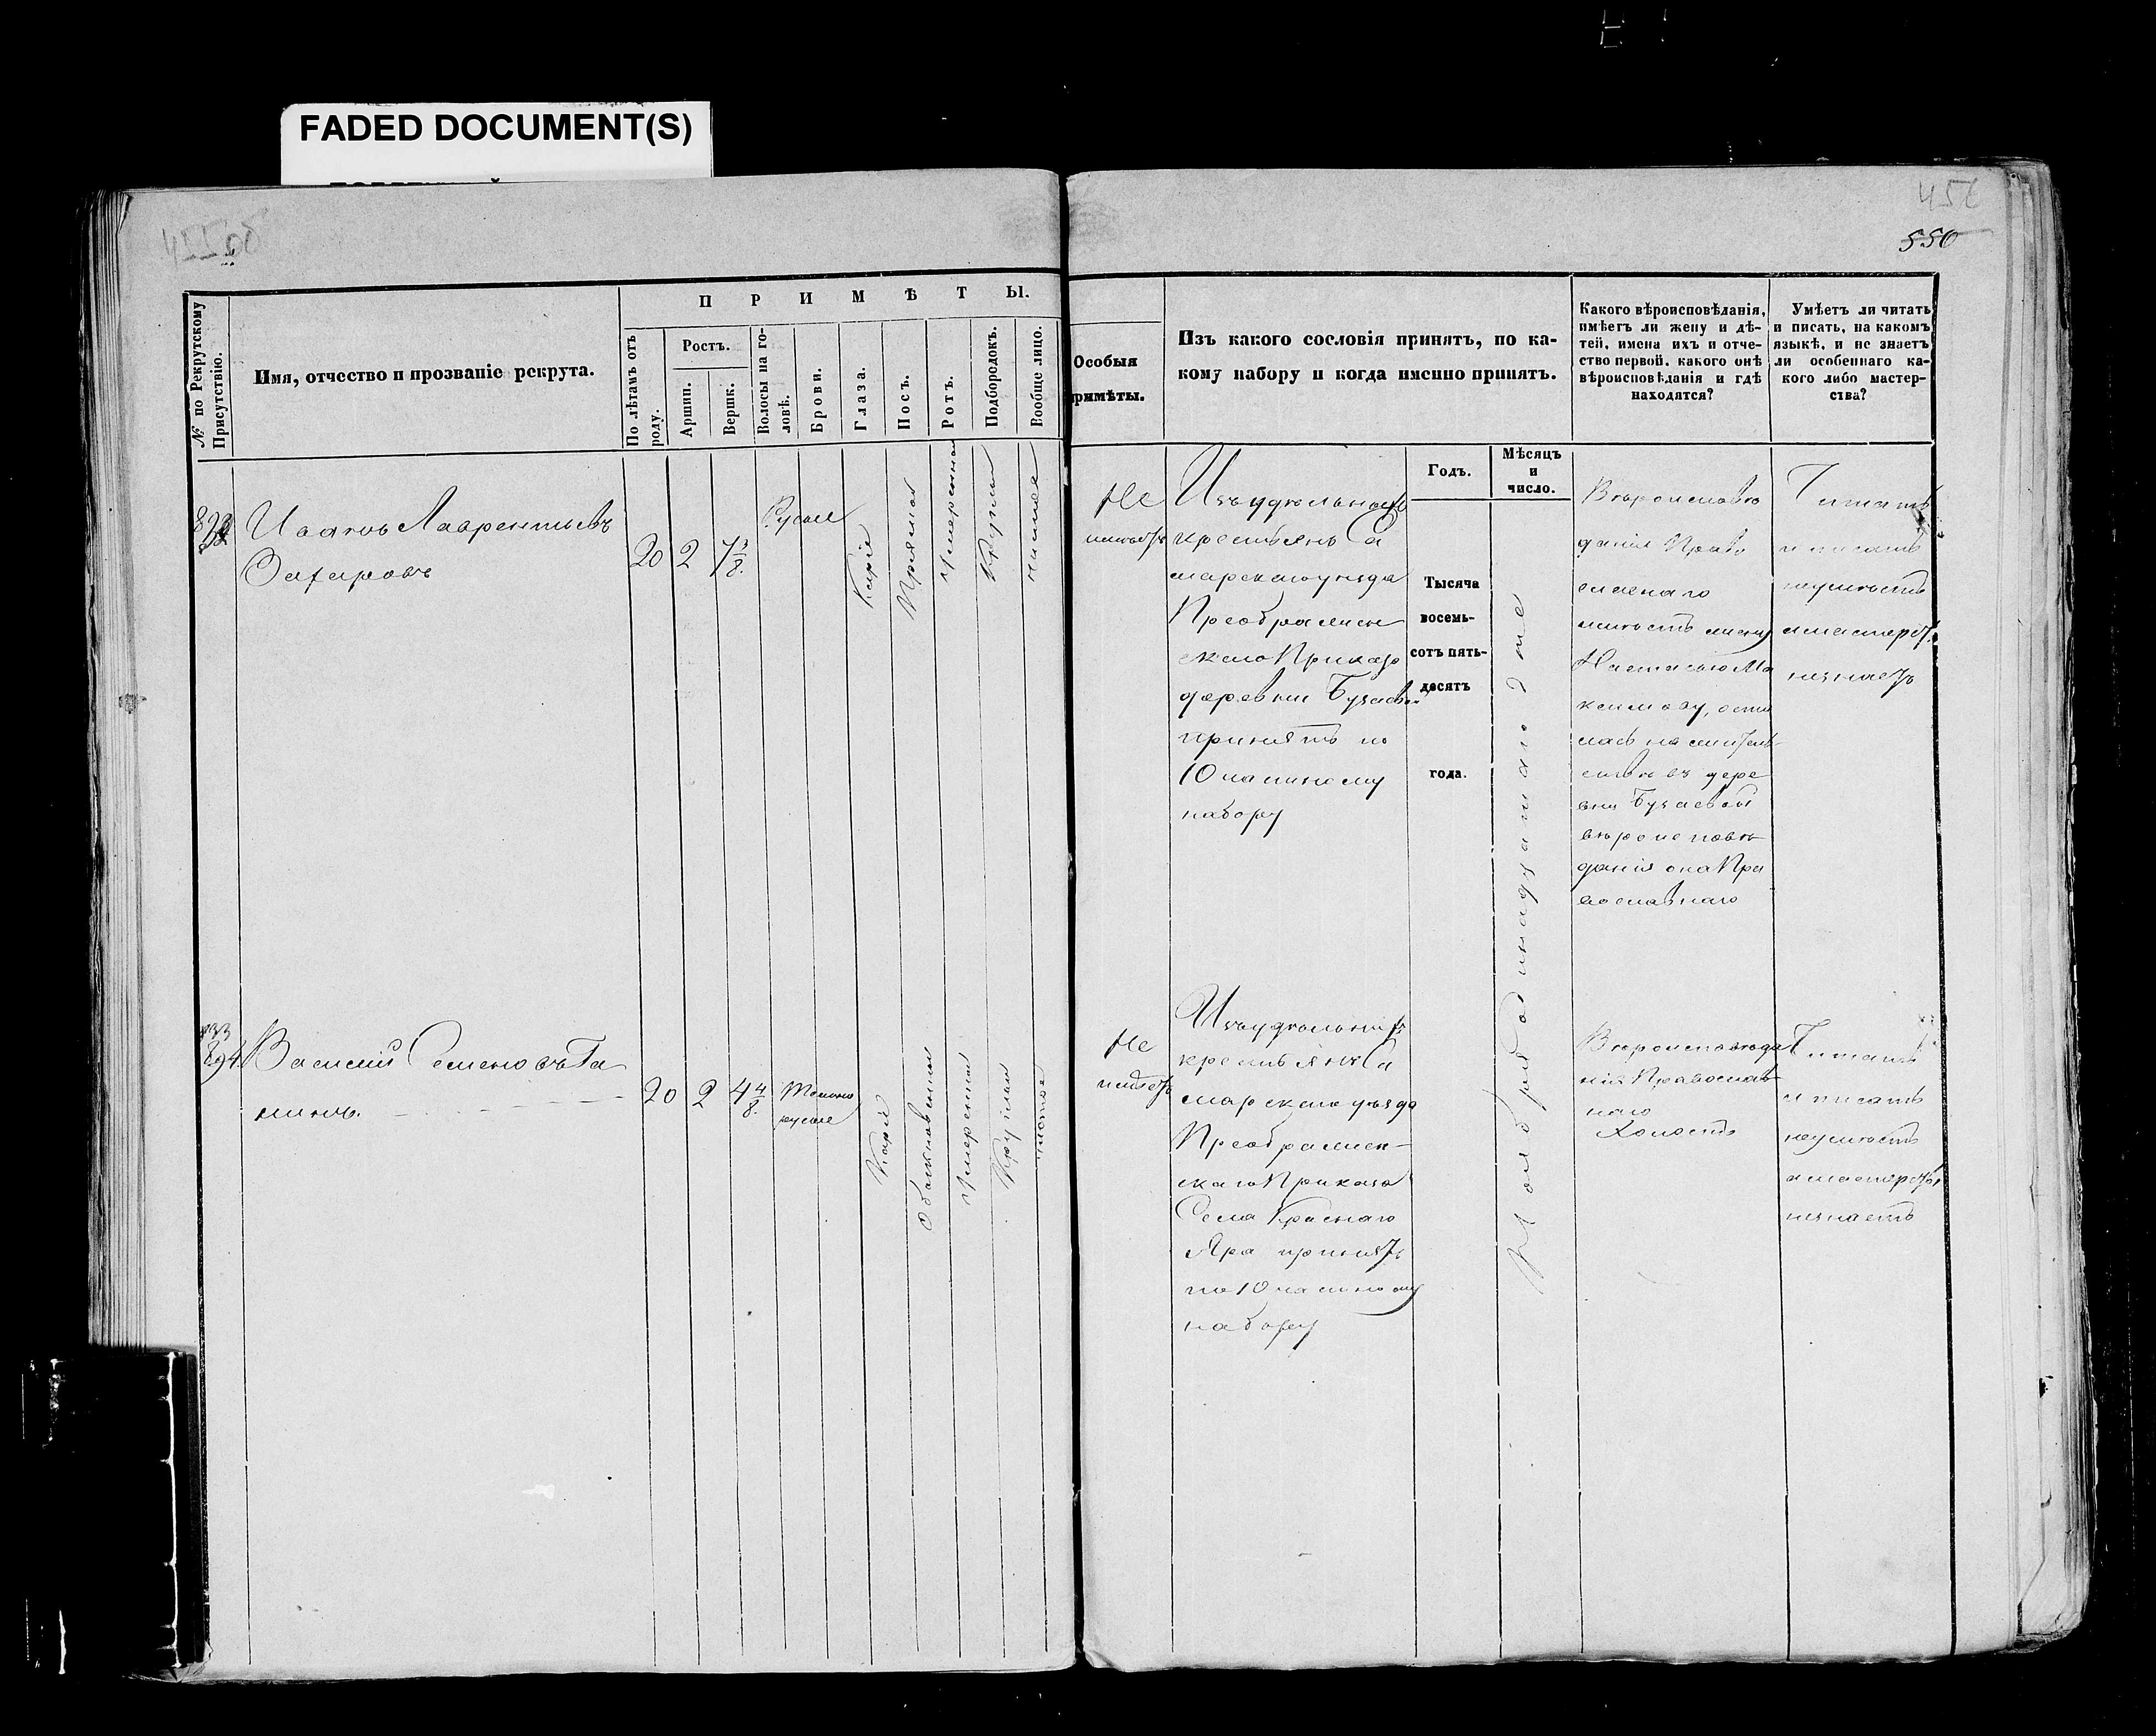 FADED DOCUMENT(S)
455об
456
550
№ по Рекрутскому Присутствію.
Имя, отчество и прозваніе рекрута.
ПРИМѢТЫ.
По лѣтамъ отъ роду.
Ростъ.
Аршин.
Вершк.
Волосы на головѣ.
Брови.
Глаза.
Носъ.
Ротъ.
Подбородокъ.
Вообще лицо.
Особыя
римѣты.
Изъ какого сословія принятъ, по ка-
кому набору и когда именно принятъ.
Какого вѣроисповѣданія,
имѣетъ ли жену и дѣ-
тей, имена ихъ и отче-
ство первой, какого онѣ
вѣроисповѣданія и гдѣ
находятся?
Умѣетъ ли читать
и писать, на какомъ
языкѣ, и не знаетъ
ли особеннаго ка-
кого либо мастер-
ства?
Годъ.
Мѣсяцъ
и
число.
893
Иванъ Лаврентьевъ
Захаровъ
20
2
7 3/8
Русые
Каріе
Прямой
умеренный
Круглый
чистое
Не
имѣетъ
Изъ удѣльныхъ
крестьянъ Са
марскаго уѣзда
Преображен
скаго Приказа
деревни Бузаевой
принятъ по
10 частному
набору
Тысяча
восемь-
сотъ пять-
десятъ
года.
Ноября одинадцатаго дня
Вѣроисповѣ
данія Право
славнаго
имѣетъ жену
Настасью Ма
ксимову, оста
лась на житель
ствѣ въ дере
вни Бузаевой
вѣроисповѣ
данія она Пра
вославнаго
Читать
и писать
неумѣетъ
а мастерст.
незнаетъ
894
Василий Семеновъ Га
нинъ.
20
2
4 4/8
Темно
русые
Каріе
Обыкновенный
умеренный
Круглый
чистое
Не
имѣетъ
Изъ удѣльныхъ
крестьянъ Са
марскаго уѣзда
Преображен-
скаго Приказа
Села Краснаго
Яра принятъ
по 10 частному
набору
Вѣроисповѣда
нія Православ
наго
Холостъ
Читать
и писать
неумѣетъ
а мастерства
незнаетъ